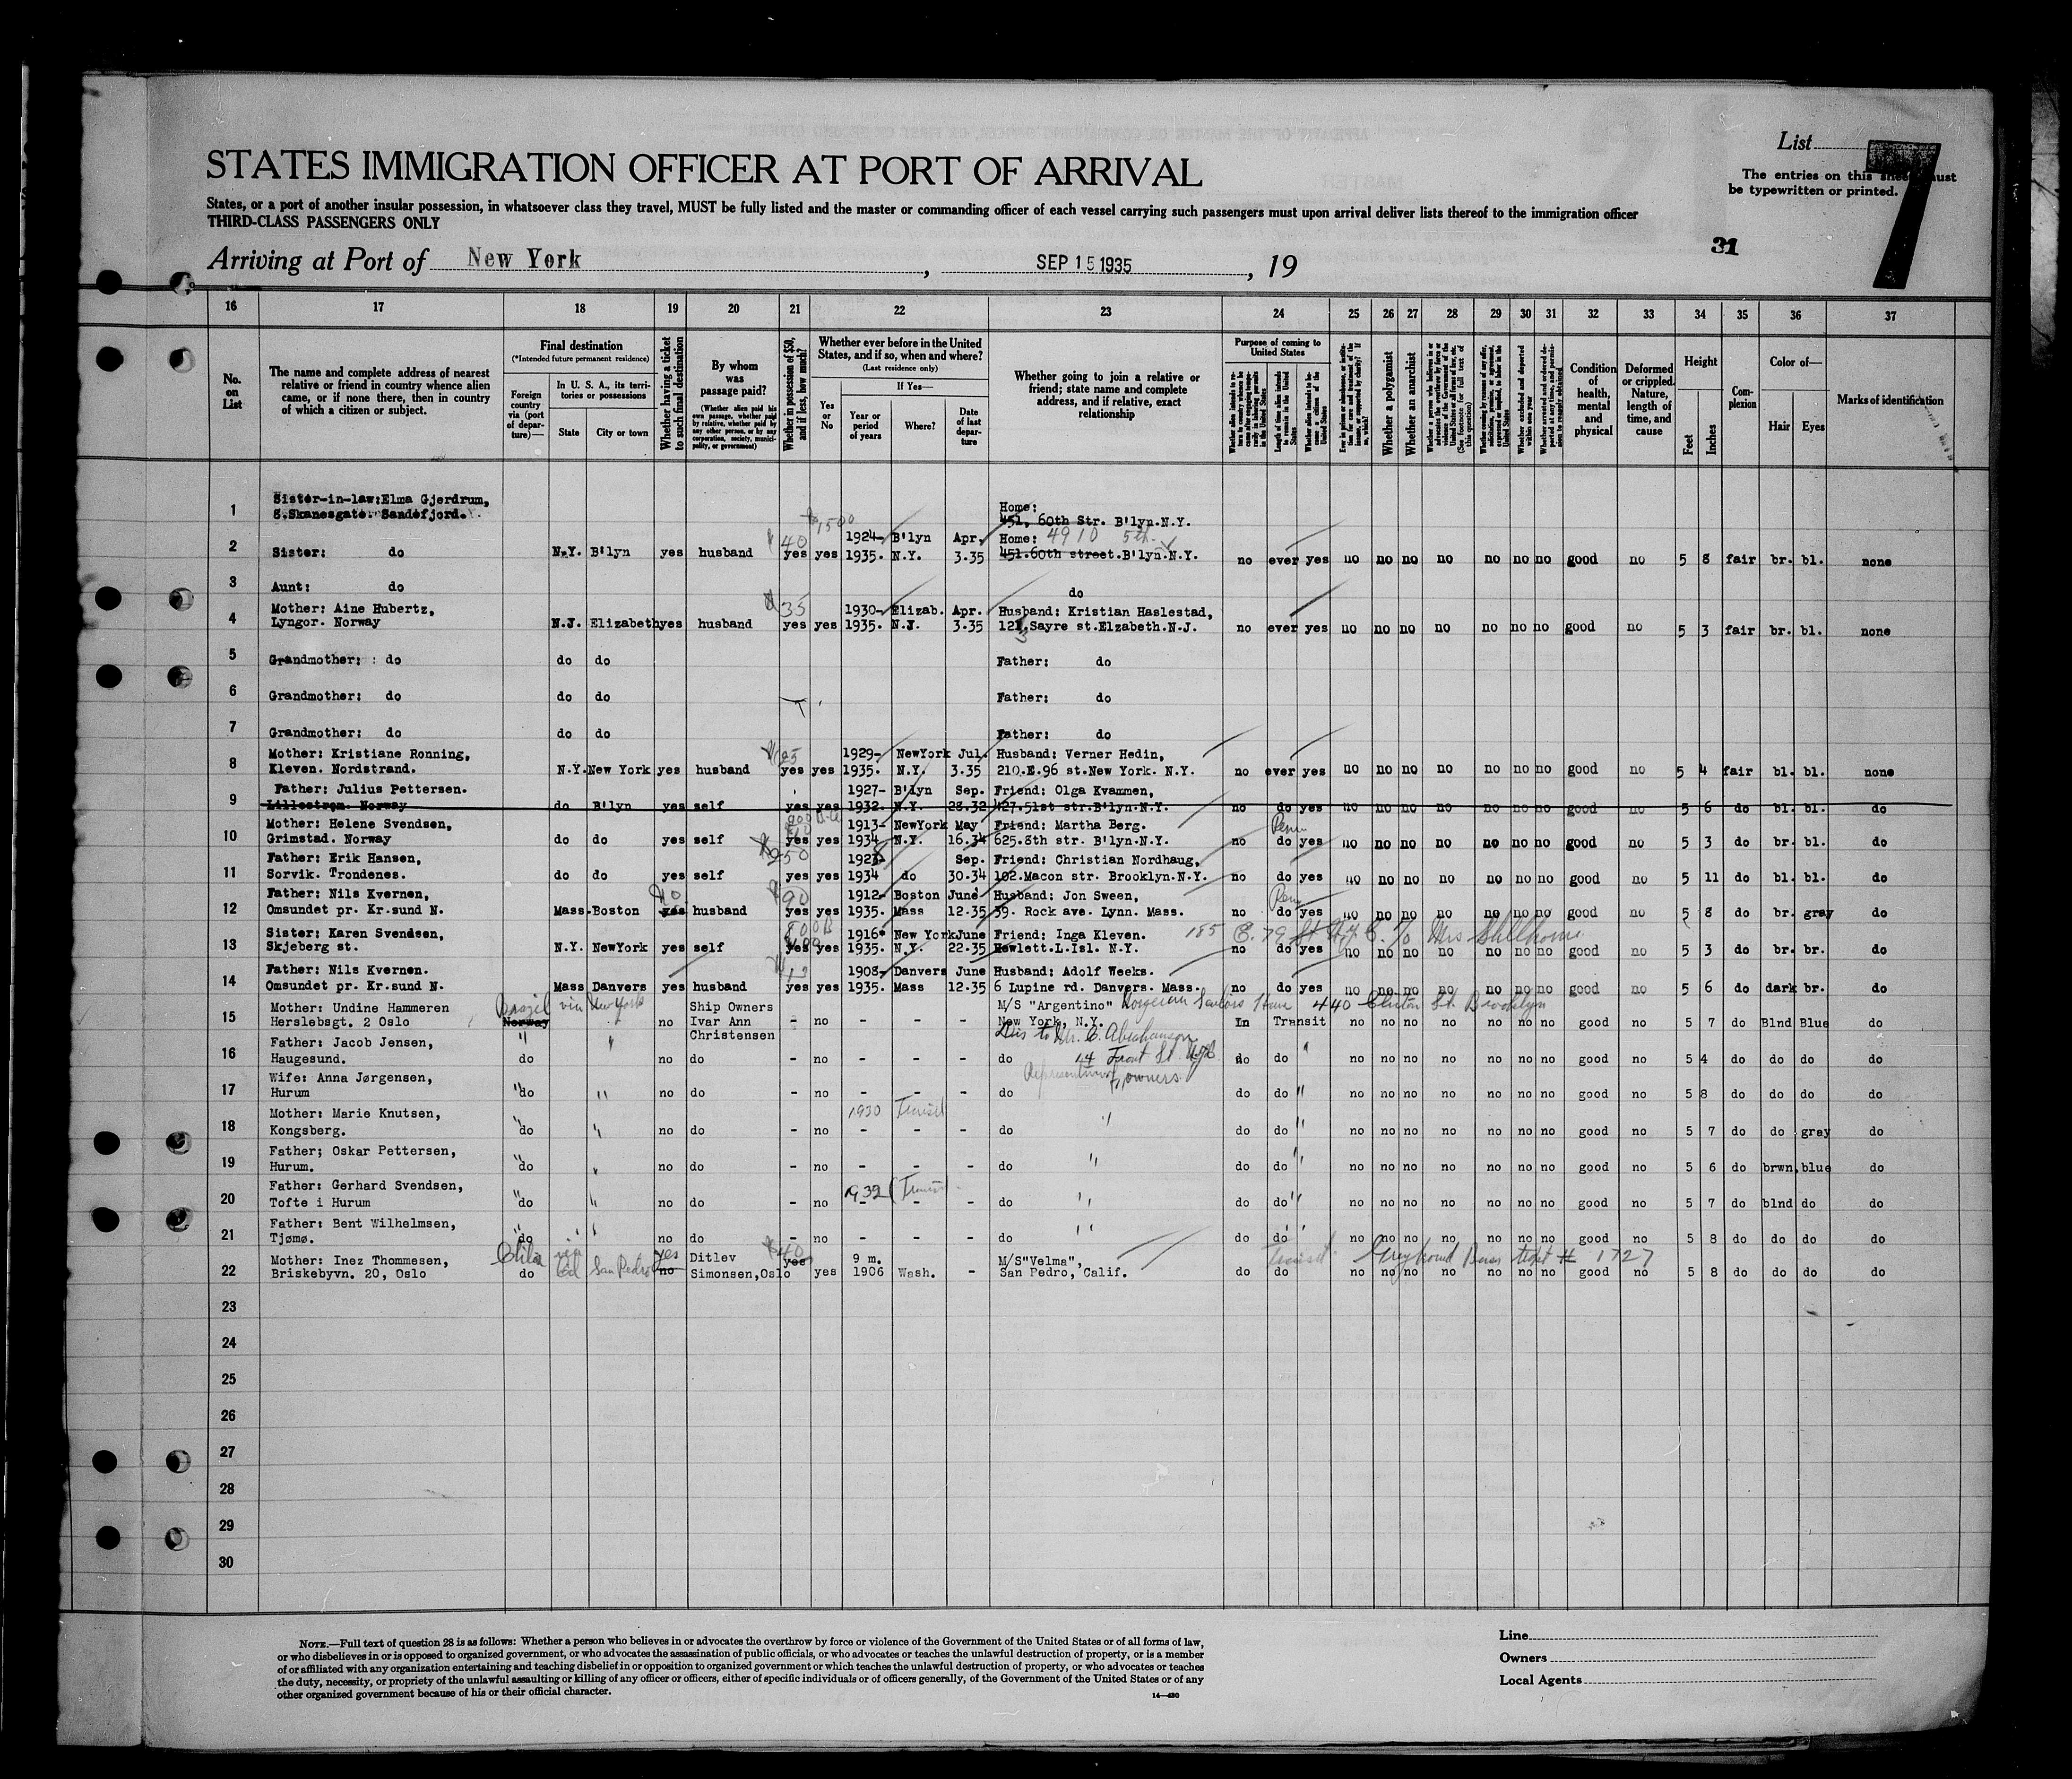 List
7
The entries on this sheet must
be typewritten or printed.
STATES IMMIGRATION OFFICER AT PORT OF ARRIVAL
States, or a port of another insular possession, in whatsoever class they travel, MUST be fully listed and the master or commanding officer of each vessel carrying such passengers must upon arrival deliver lists thereof to the immigration officer
THIRD-CLASS PASSENGERS ONLY
31
Arriving at Port of New York, SEP 15 1935, 19
16 17 18 19 20 21 22 23 24 25 26 27 28 29 30 31 32 33 34 35 36 37
No. on List
The name and complete address of nearest relative or friend in country whence alien came, or if none there, then in country of which a citizen or subject.
Final destination
(*Intended future permanent residence)
Foreign country via (port of departure)—
In U. S. A., its territories or possessions
State
City or town
Whether having a ticket to such final destination
By whom was passage paid?
(Whether alien paid his own passage, whether paid by relative, whether paid by any other person, or by any corporation, society, municipality, or government)
Whether in possession of $50, and if less, how much?
Whether ever before in the United States, and if so, when and where?
(Last residence only)
Yes or No
If Yes—
Year or period of years
Where?
Date of last departure
Whether going to join a relative or friend; state name and complete address, and if relative, exact relationship
Purpose of coming to United States
Whether a polygamist
Whether an anarchist
Condition of health, mental and physical
Deformed or crippled. Nature, length of time, and cause
Height
Feet
Inches
Complexion
Color of—
Hair
Eyes
Marks of identification
1 Sister-in-law:Elma Gjerdrum,
S.Skanesgate. Sandefjord. Home:
451, 60th Str. B'lyn.N.Y.
$1500
2 $40 1924- B'lyn Apr. Home: 4910 5th
Sister: do N.Y. B'lyn yes husband yes yes 1935. N.Y. 3.35 451.60th street.B'lyn.N.Y. no ever yes no no no no no no no good no 5 8 fair br. bl. none
3 Aunt: do do
4 Mother: Aine Hubertz, $35 1930- Elizab. Apr. Husband: Kristian Haslestad,
Lyngor. Norway N.J. Elizabeth yes husband yes yes 1935. N.J. 3.35 121,Sayre st.Elzabeth.N.J. no ever yes no no no no no no no good no 5 3 fair br. bl. none
5 Grandmother: do do do Father: do
6 Grandmother: do do do Father: do
7 Grandmother: do do do Father: do
8 Mother: Kristiane Ronning, 1929- NewYork Jul. Husband: Verner Hedin,
Kleven. Nordstrand. N.Y. New York yes husband yes yes 1935. N.Y. 3.35 210.E.96 st.New York. N.Y. no ever yes no no no no no no no good no 5 4 fair bl. bl. none
9 Father: Julius Pettersen. 1927- B'lyn Sep. Friend: Olga Kvammen,
Lillestrom. Norway do B'lyn yes self yes yes 1932. N.Y. 28.32 427.51st str.B'lyn.N.Y. no do yes no no no no no no no good no 5 6 do bl. bl. do
10 Mother: Helene Svendsen, 1913- NewYork May Friend: Martha Berg.
Grimstad. Norway do do yes self yes yes 1934 N.Y. 16.34 625.8th str. B'lyn.N.Y. no do yes no no no no no no no good no 5 3 do br. bl. do
11 Father: Erik Hansen, $250 1923- Sep. Friend: Christian Nordhaug,
Sorvik. Trondenes. do do yes self yes yes 1934 do 30.34 102.Macon str. Brooklyn.N.Y. no do yes no no no no no no no good no 5 11 do bl. bl. do
12 Father: Nils Kvernen, no $90 1912- Boston June Husband: Jon Sween,
Omsundet pr. Kr.sund N. Mass. Boston yes husband yes yes 1935. Mass 12.35 39. Rock ave. Lynn. Mass. no do yes no no no no no no no good no 5 8 do br. gray do
13 Sister: Karen Svendsen, 1916- New York June Friend: Inga Kleven. 185 E. 79 St
Skjeberg st. N.Y. NewYork yes self yes yes 1935. N.Y. 22-35 Hewlett.L.Isl. N.Y. no do yes no no no no no no no good no 5 3 do br. br. do
14 Father: Nils Kvernen. 1908- Danvers June Husband: Adolf Weeks.
Omsundet pr. Kr.sund N. Mass Danvers yes husband yes yes 1935. Mass 12-35 6 Lupine rd. Danvers. Mass. no do yes no no no no no no no good no 5 6 do dark br. do
15 Mother: Undine Hammeren Brazil via New York Ship Owners M/S "Argentino" Norwegian Sailors Home 440 Clinton St. Brooklyn
Herslebsgt. 2 Oslo Norway no Ivar Ann - no - - - New York, N.Y. In Transit no no no no no no no good no 5 7 do Blnd Blue do
Christensen
16 Father: Jacob Jensen,
Haugesund. do no do - no - - - do 44 Front St. do do no no no no no no no good no 5 4 do do do do
Representing owners
17 Wife: Anna Jørgensen,
Hurum do no do - no - - - do do do no no no no no no no good no 5 8 do do do do
18 Mother: Marie Knutsen, 1930 Transit
Kongsberg. do no do - no - - - do do do no no no no no no no good no 5 7 do do gray do
19 Father; Oskar Pettersen,
Hurum. do no do - no - - - do do do no no no no no no no good no 5 6 do brwn. blue do
20 Father: Gerhard Svendsen, 1932 (Transit
Tofte i Hurum do no do - no - - - do do do no no no no no no no good no 5 7 do blnd do do
21 Father: Bent Wilhelmsen,
Tjømø. do no do - no - - - do do do no no no no no no no good no 5 8 do do do do
22 Mother: Inez Thommesen, China via yes Ditlev $40 yes 9 m. M/S"Velma", Transit Greyhound Bus ticket # 1727
Briskebyvn. 20, Oslo do San Pedro no Simonsen,Oslo yes 1906 Wash. - San Pedro, Calif. do do no no no no no no no good no 5 8 do do do do
23
24
25
26
27
28
29
30
NOTE.—Full text of question 28 is as follows: Whether a person who believes in or advocates the overthrow by force or violence of the Government of the United States or of all forms of law,
or who disbelieves in or is opposed to organized government, or who advocates the assassination of public officials, or who advocates or teaches the unlawful destruction of property, or is a member
of or affiliated with any organization entertaining and teaching disbelief in or opposition to organized government or which teaches the unlawful destruction of property, or who advocates or teaches
the duty, necessity, or propriety of the unlawful assaulting or killing of any officer or officers, either of specific individuals or of officers generally, of the Government of the United States or of any
other organized government because of his or their official character.
14—480
Line
Owners
Local Agents